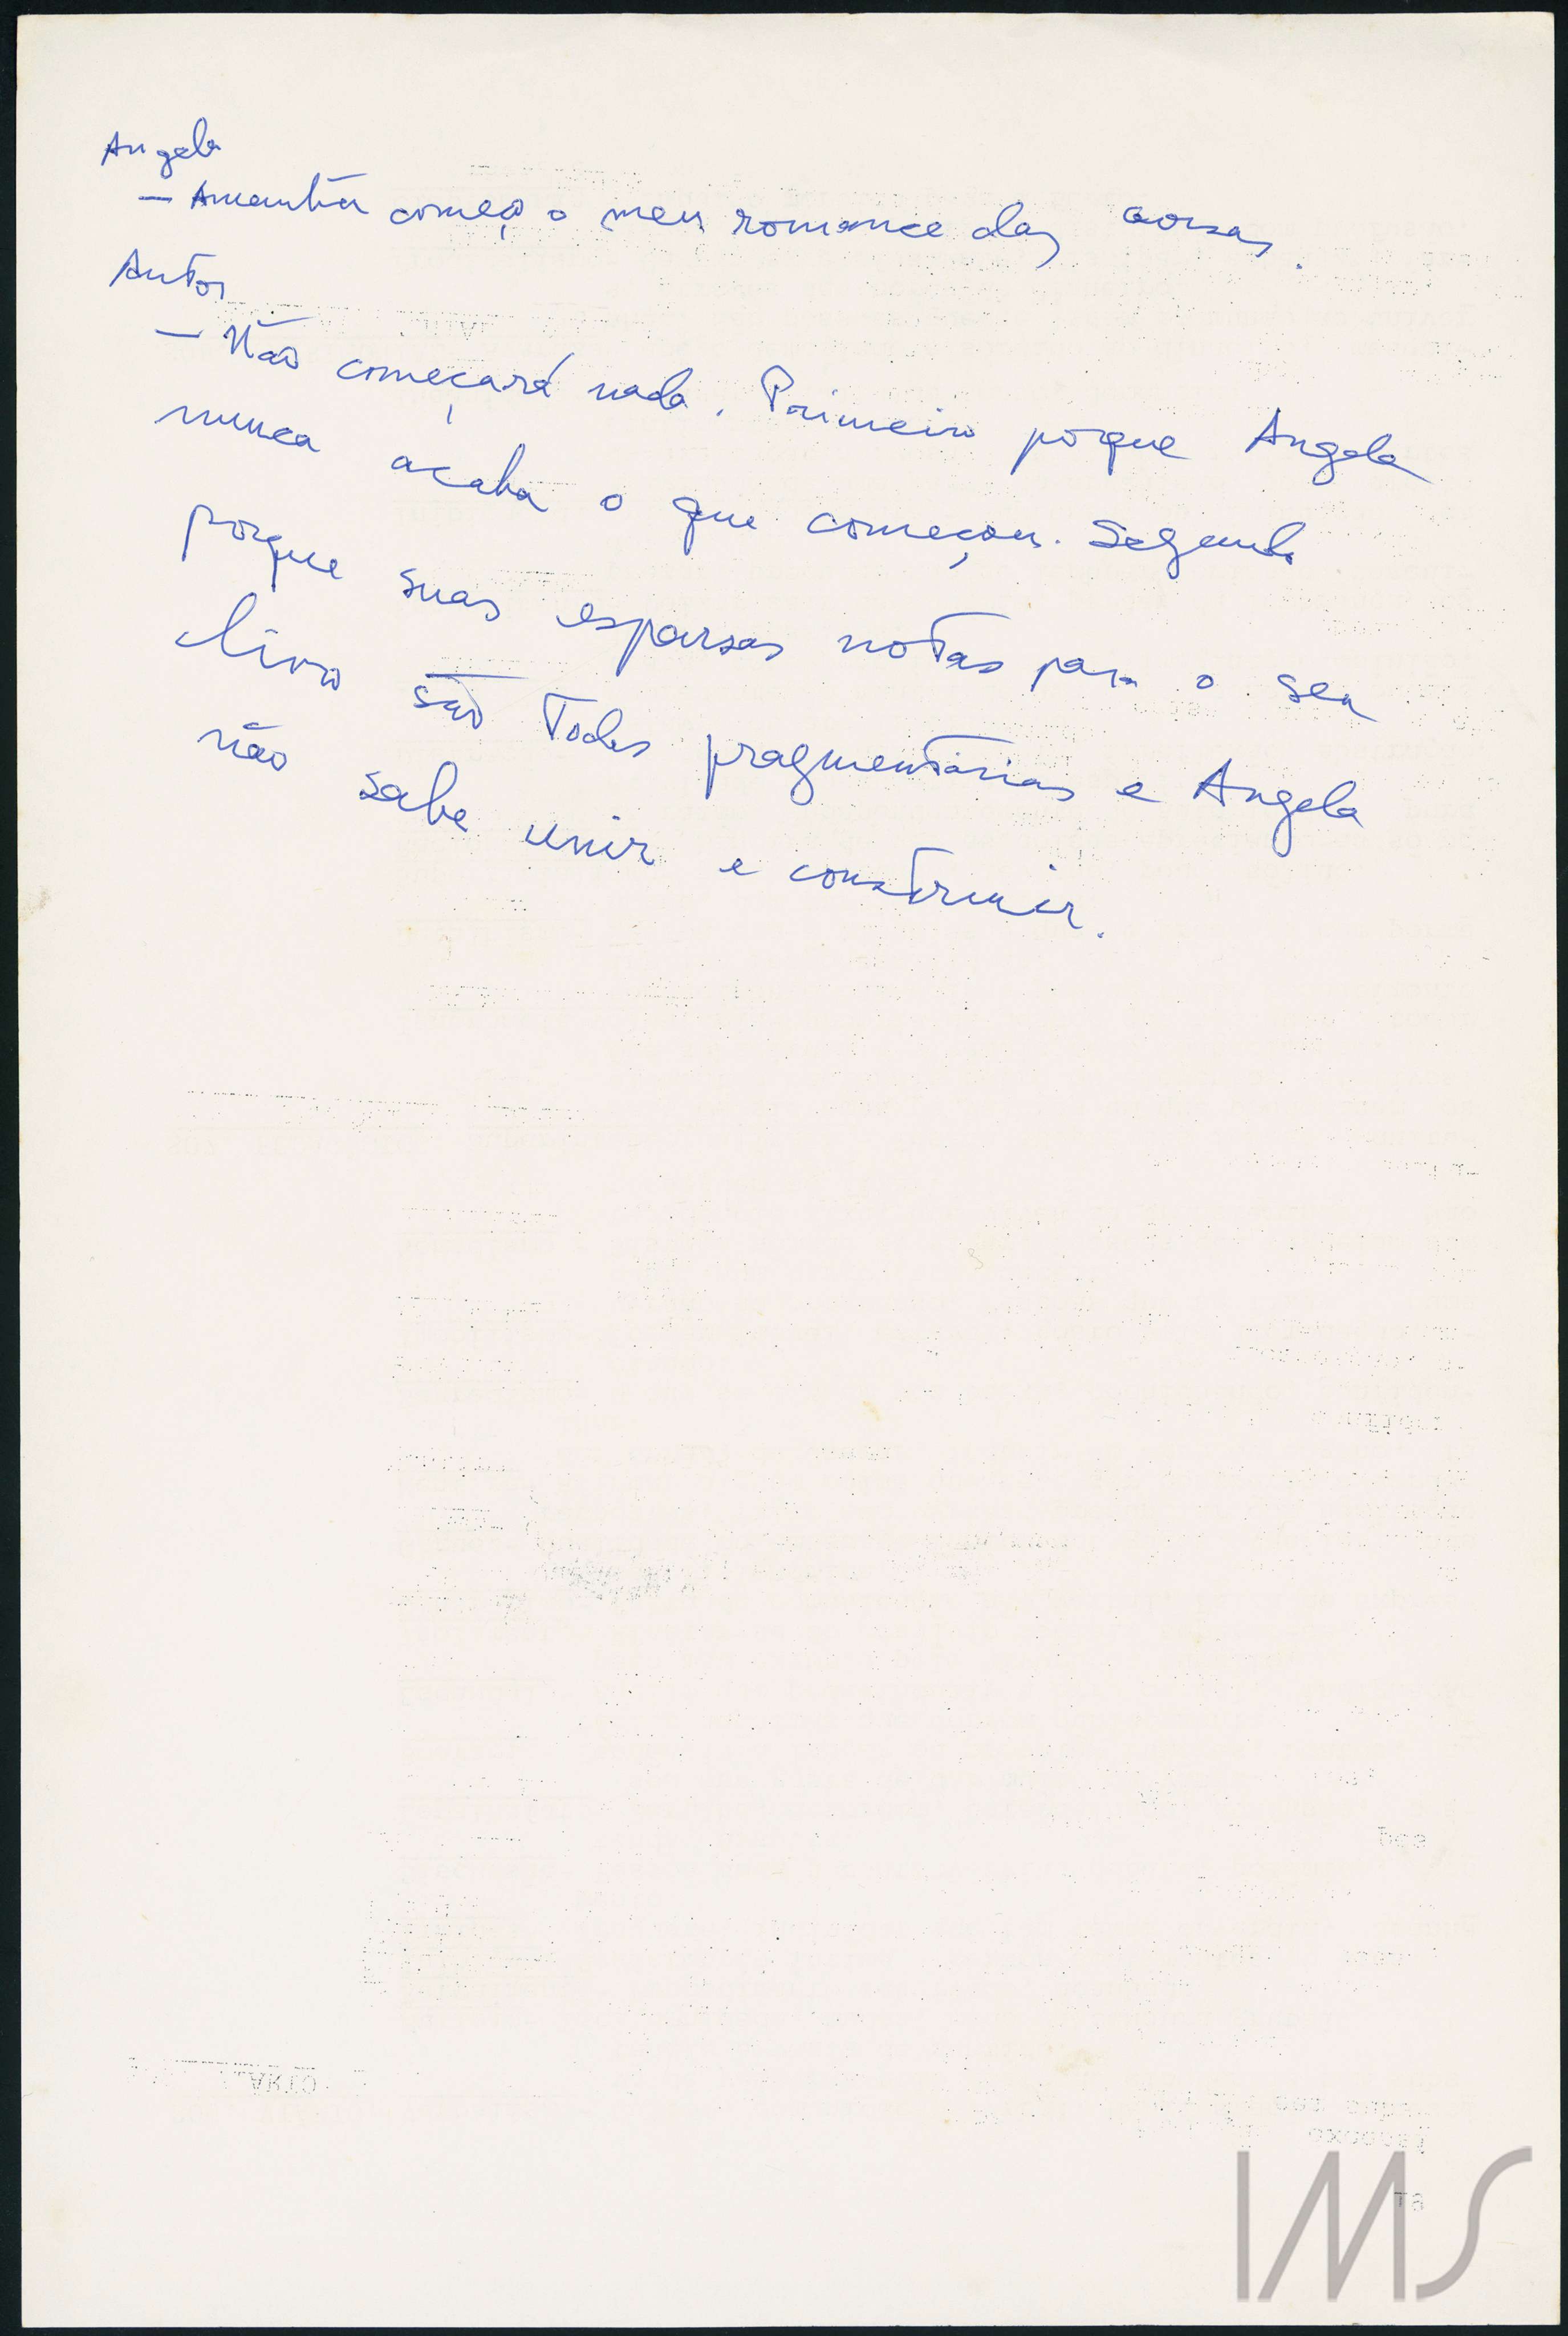 Angela
— Amanhã começo o meu romance das coisas.
Autor
— Não começará nada. Primeiro porque Angela
nunca acaba o que começou. Segundo
porque suas esparsas notas para o seu
livro são todas fragmentárias e Angela
não sabe unir e construir.
IMS